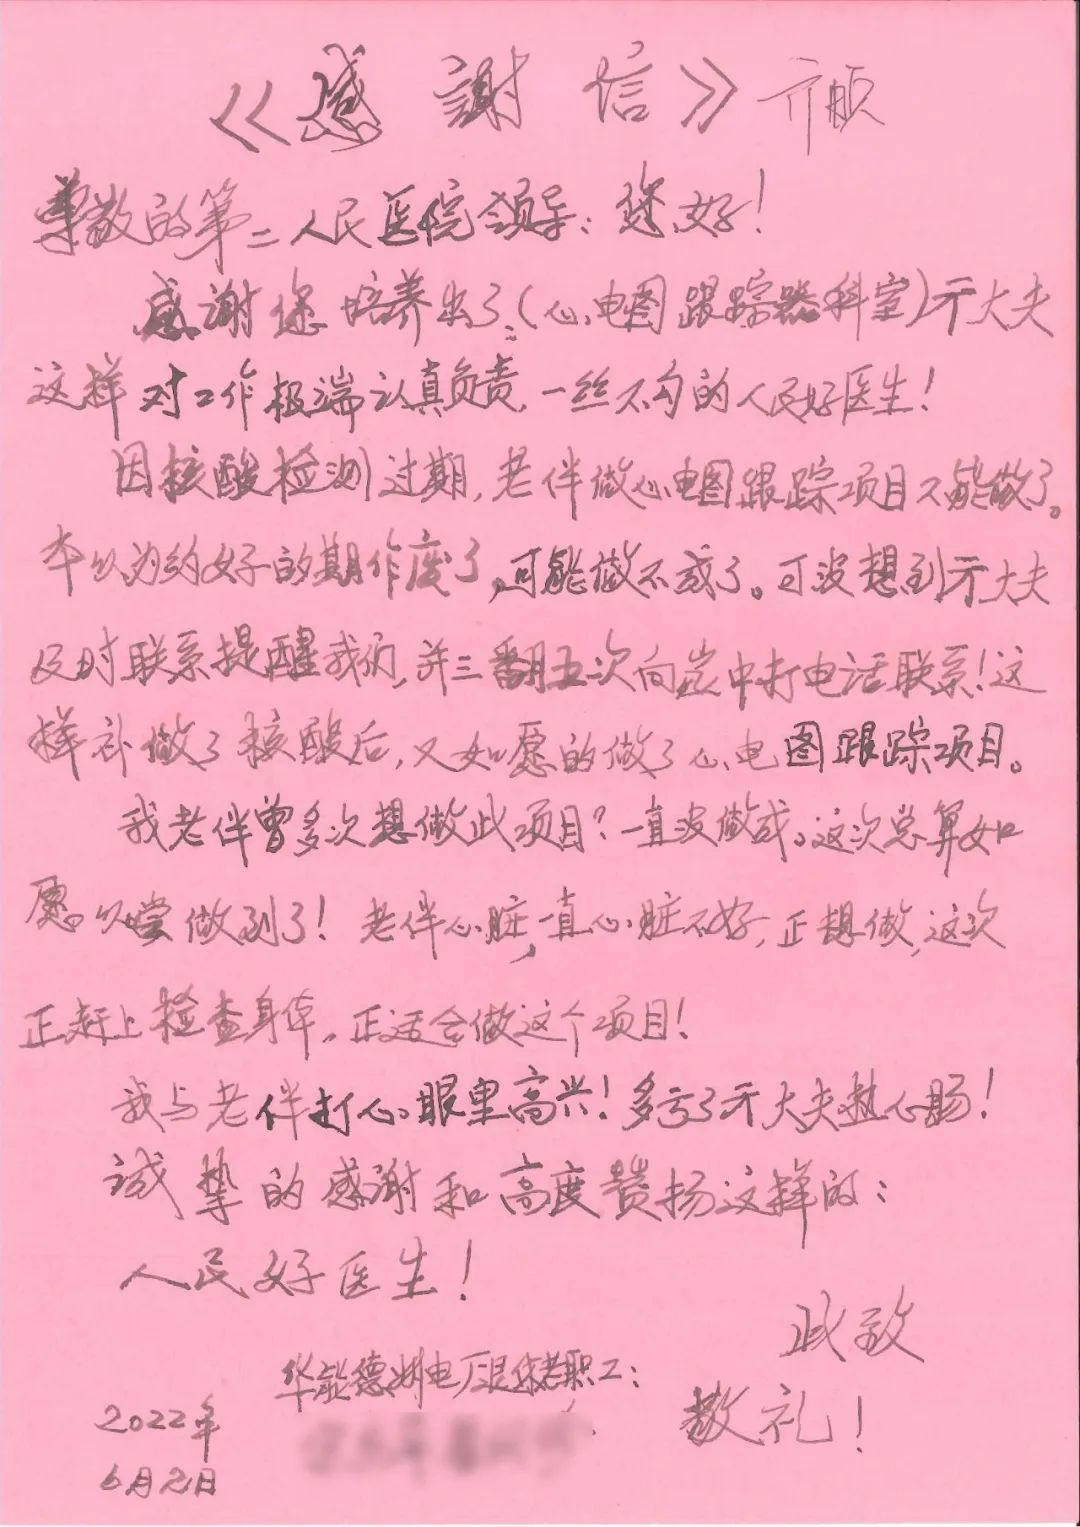 《感謝信》
尊敬的第二人民医院领导：您好！
感谢您培养出了：（心电图跟踪器科室）亓大夫
这样对工作极端认真负责，一丝不勾的人民好医生！
因核酸检测过期，老伴做心电图跟踪项目不能做了。
本以为约好的期作废了，可能做不成了。可没想到亓大夫
及时联系提醒我们，并三翻五次向岗中打电话联系！这
样补做了核酸后，又如愿的做了心电图跟踪项目。
我老伴曾多次想做此项目？一直没做成。这次总算如
愿以尝做到了！老伴心脏，一直心脏不好，正想做，这次
正赶上检查身体，正适合做这个项目！
我与老伴打心眼里高兴！多亏了亓大夫热心肠！
诚挚的感谢和高度赞扬这样的：
人民好医生！
此致
敬礼！
华能德州电厂退休老职工：
2022年
6月2日